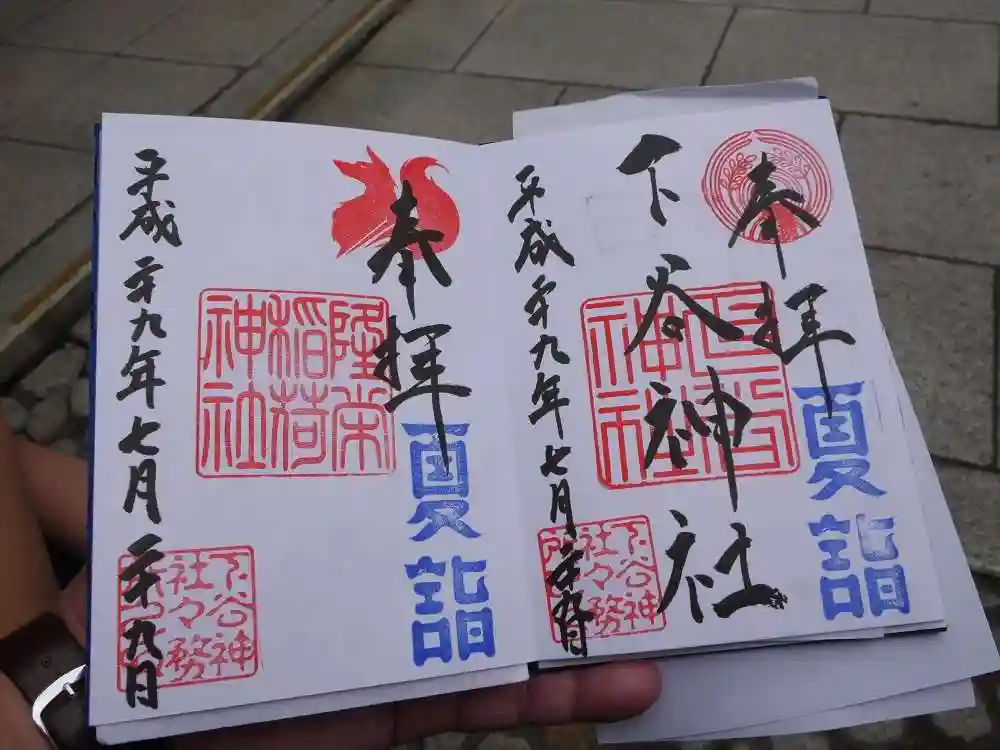 奉拝
夏詣
下谷神社
下谷
神社
平成二十九年七月二十九日
下谷神
社々務
所
奉拝
夏詣
隆栄
稲荷
神社
平成二十九年七月二十九日
下谷神
社々務
所